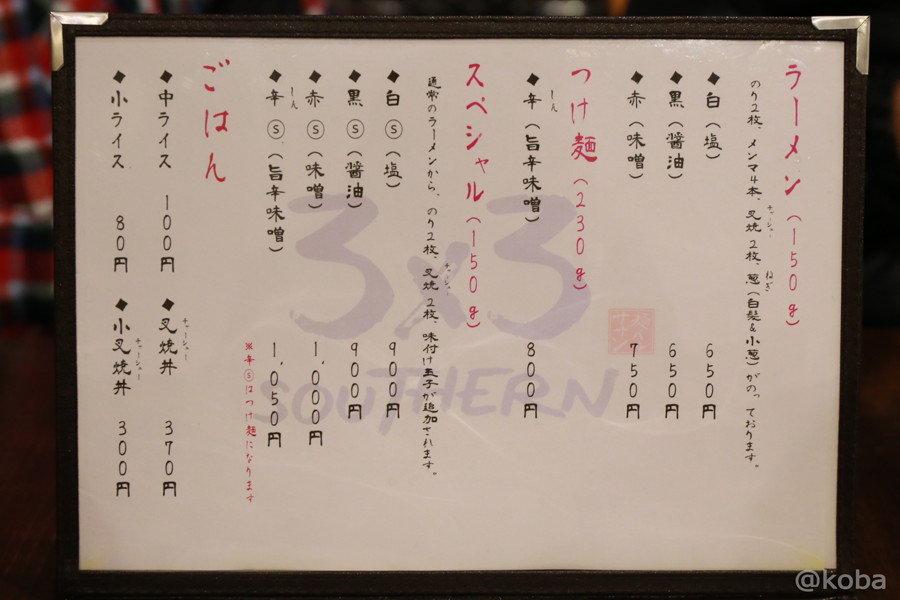 ラーメン(150g)
のり2枚、メンマ4本、叉焼2枚、葱(白髪&小葱)がのっております。
チャーシュー
ねぎ
◆白(塩) 650円
◆黒(醤油) 650円
◆赤(味噌) 750円
つけ麺(230g)
◆辛(旨辛味噌) 800円
しん
スペシャル(150g)
通常のラーメンから、のり2枚、叉焼2枚、味付け玉子が追加されます。
チャーシュー
◆白Ⓢ(塩) 900円
◆黒Ⓢ(醤油) 900円
◆赤Ⓢ(味噌) 1,000円
◆辛Ⓢ(旨辛味噌) 1,050円
しん
※辛Ⓢはつけ麺になります
ごはん
◆中ライス 100円
◆叉焼丼 370円
チャーシュー
◆小ライス 80円
◆小叉焼丼 300円
チャーシュー
3×3
SOUTHERN
@koba